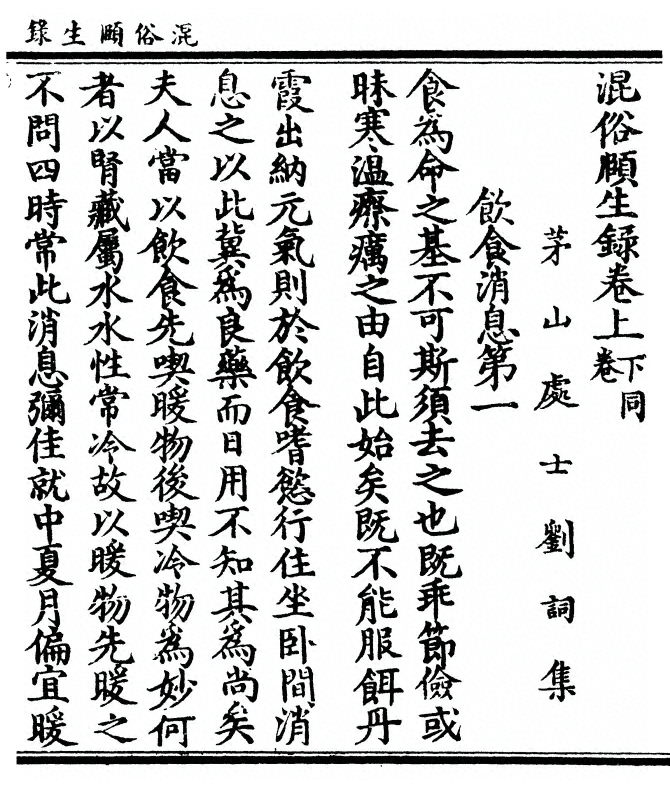 混俗頥生錄
混俗頥生錄卷上下卷同
茅山處士劉詞集
飲食消息第一
食爲命之基不可斯須去之也既乖節儉或
昧寒溫瘵癘之由自此始矣既不能服餌丹
霞出納元氣則於飲食嗜慾行住坐卧間消
息之以此冀爲良藥而日用不知其爲尚矣
夫人當以飲食先喫暖物後喫冷物爲妙何
者以腎藏屬水水性常冷故以暖物先暖之
不問四時常此消息彌佳就中夏月偏宜暖